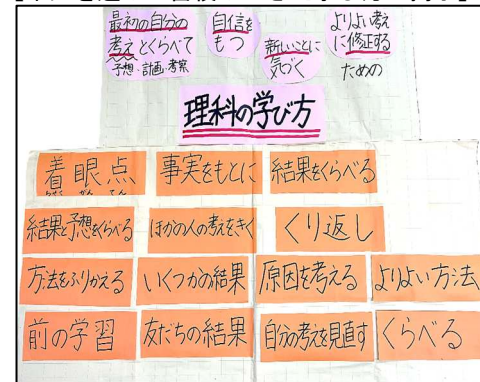 最初の自分の
考えとくらべて
予想・計画・考察
自信を
もつ
新しいことに
気づく
よりよい考え
に修正する
ための
理科の学び方
着眼点
ちゃくがんてん
事実をもとに
結果をくらべる
結果と予想をくらべる
ほかの人の考えをきく
くり返し
方法をふりかえる
いくつかの結果
原因を考える
よりよい方法
前の学習
友だちの結果
自分の考えを見直す
くらべる